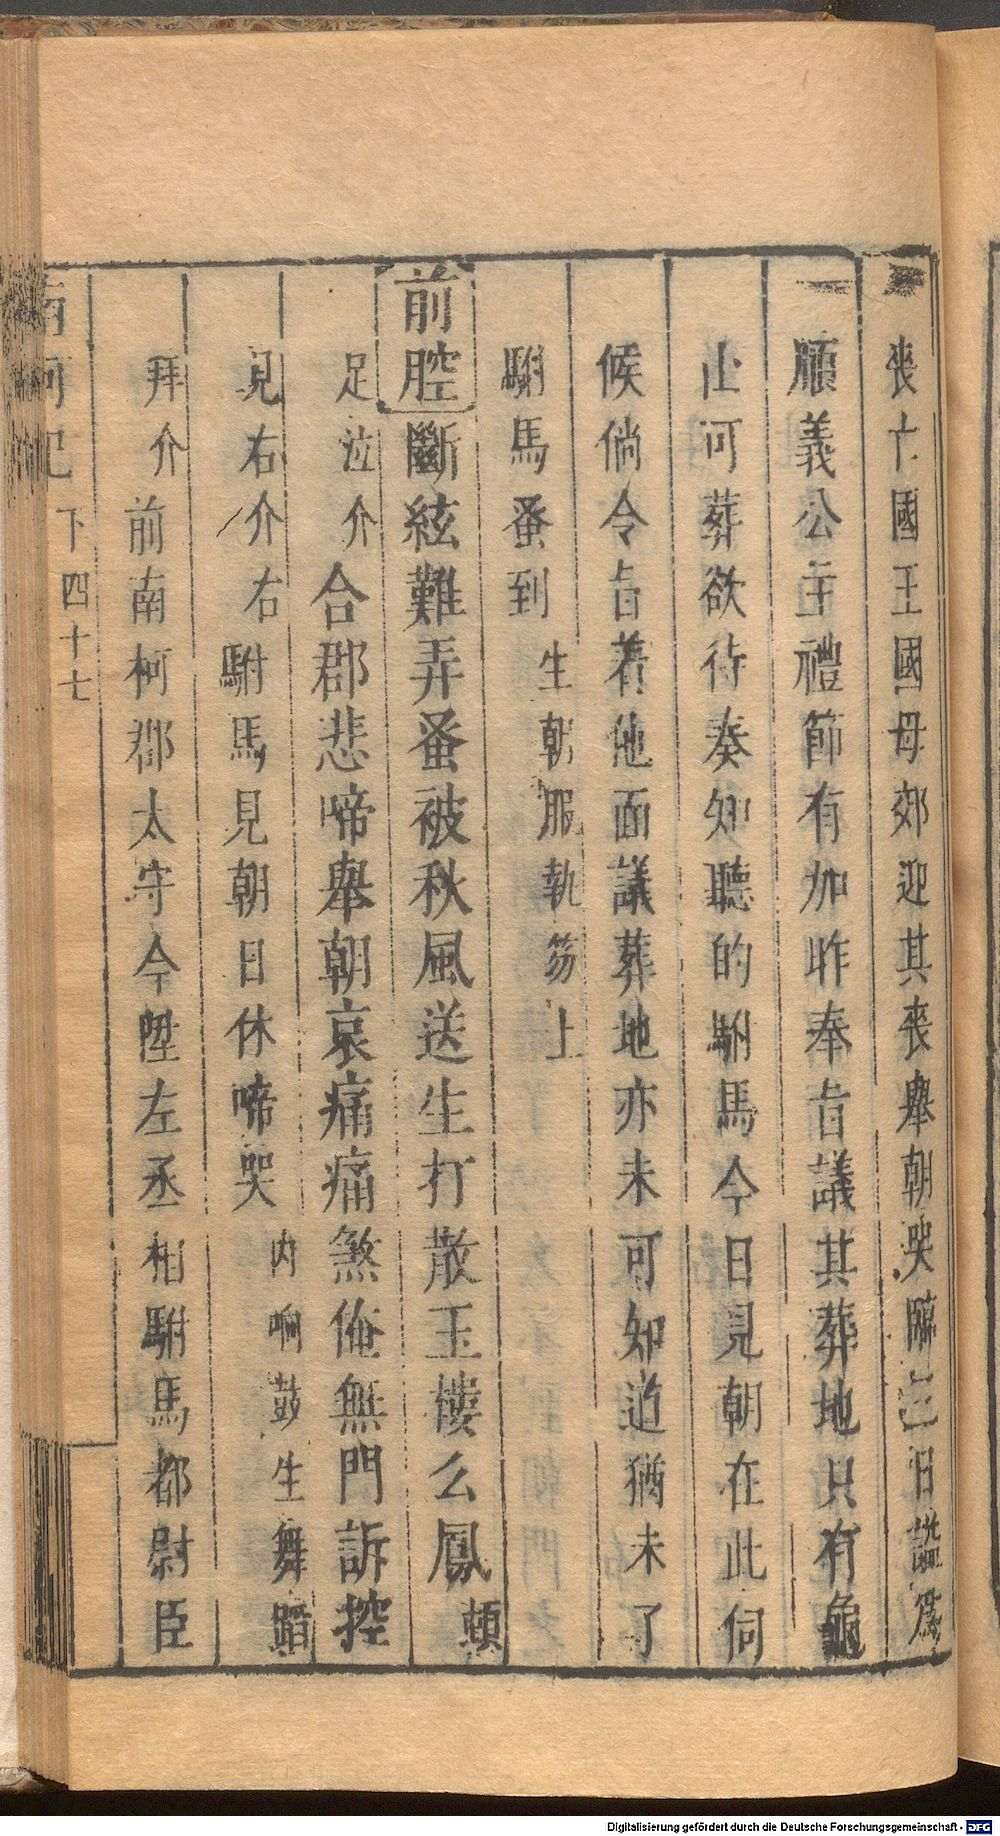 喪亡國王國母郊迎其喪舉朝哭臨三日謚爲
順義公主禮節有加昨奉旨議其葬地只有龜
山可葬欲待奏知聽的駙馬今日見朝在此伺
候倘令旨着他面議葬地亦未可知道猶未了
駙馬蚤到生朝服執笏上
前腔斷絃難弄蚤被秋風送生打散玉樓么鳳頓
足泣介合郡悲啼舉朝哀痛痛煞俺無門訴控
見右介右駙馬見朝日休啼哭内响鼓生舞蹈
拜介前南柯郡太守今陞左丞相駙馬都尉臣
南柯記 下 四十七
Digitalisierung gefördert durch die Deutsche Forschungsgemeinschaft - DFG